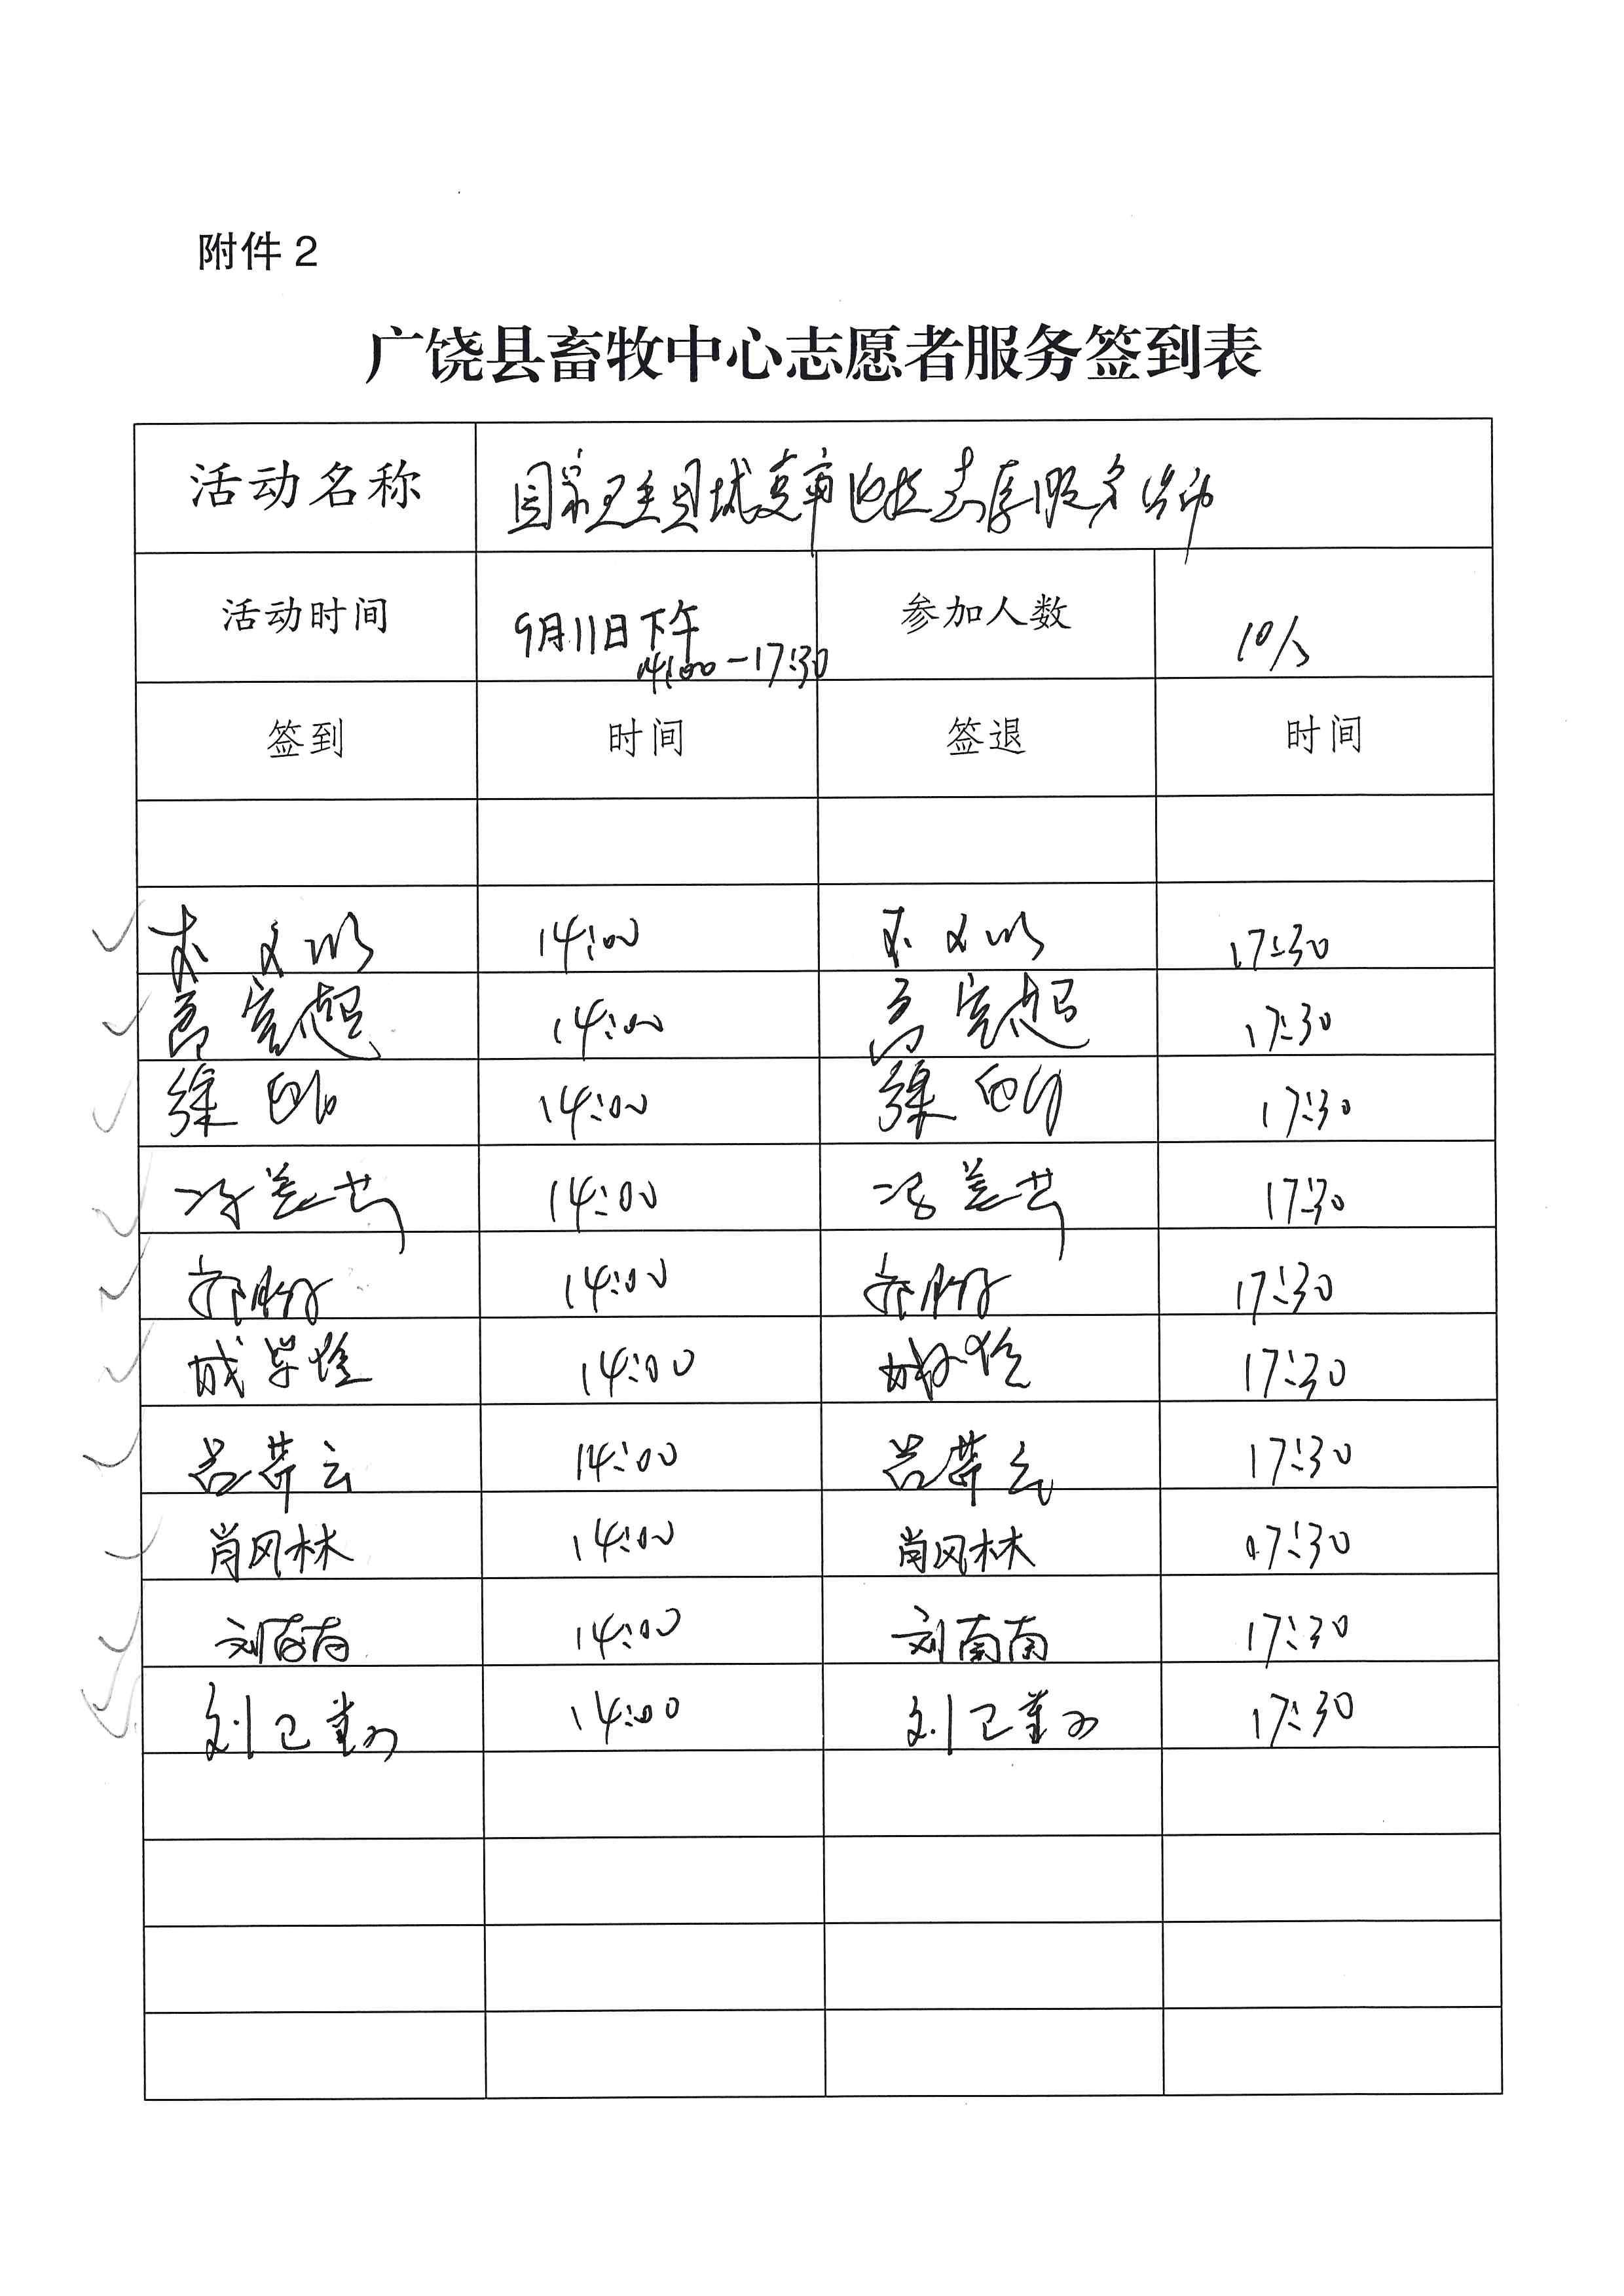 附件2
广饶县畜牧中心志愿者服务签到表
活动名称 国家卫生县城复审迎检志愿服务活动
活动时间 9月11日下午 14:00-17:30 参加人数 10人
签到 时间 签退 时间
14:00 17:30
高宏超 14:00 高宏超 17:30
徐 14:00 徐 17:30
冯 14:00 冯 17:30
14:00 17:30
成 14:00 成 17:30
吕荐云 14:00 吕荐云 17:30
肖风林 14:00 肖风林 17:30
刘南南 14:00 刘南南 17:30
刘卫 14:00 刘卫 17:30